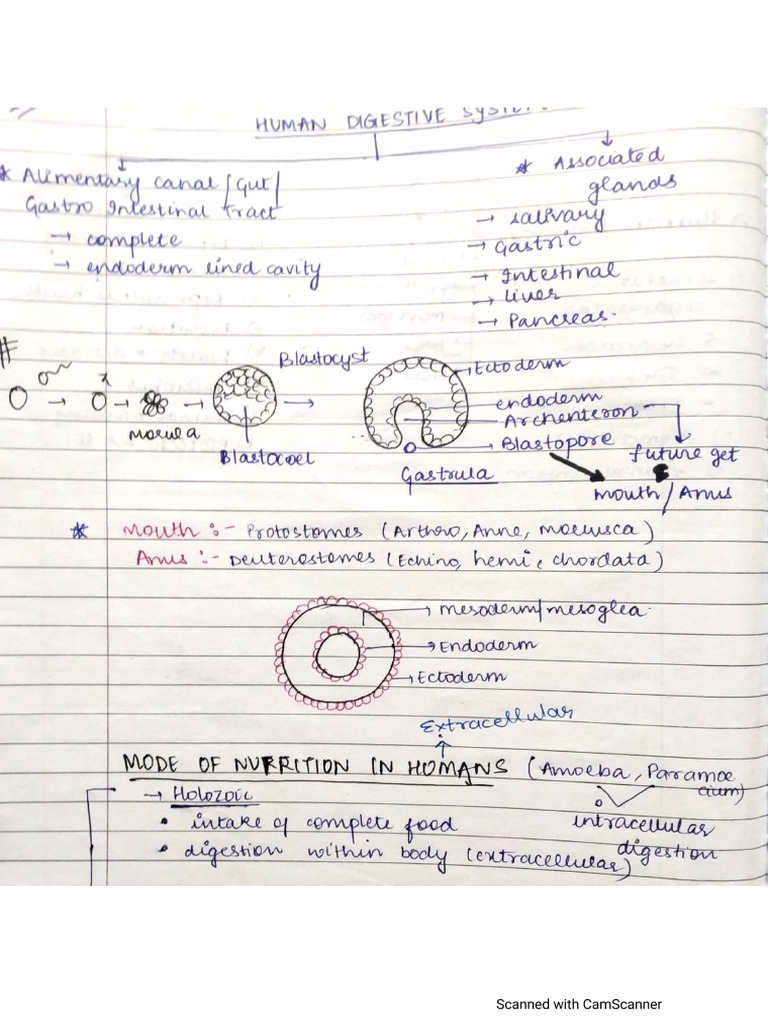 HUMAN DIGESTIVE SYSTEM
* Alimentary canal / Gut /
Gastro Intestinal tract
→ complete
→ endoderm lined cavity
* Associated
glands
→ salivary
→ Gastric
→ Intestinal
→ liver
→ Pancreas.
#
Blastocyst
morula
Blastocoel
Ectoderm
endoderm
Archenteron
Blastopore
Gastrula
future get
mouth / Anus
* Mouth :- Protostomes (Arthro, Anne, mollusca)
Anus :- Deuterostomes (Echino, hemi, chordata)
→ mesoderm/mesoglea.
→ Endoderm
→ Ectoderm
Extracellular
MODE OF NUTRITION IN HUMANS (Amoeba, Paramoe
cium)
→ Holozoic
• intake of complete food
• digestion within body (extracellular)
intracellular
digestion
Scanned with CamScanner